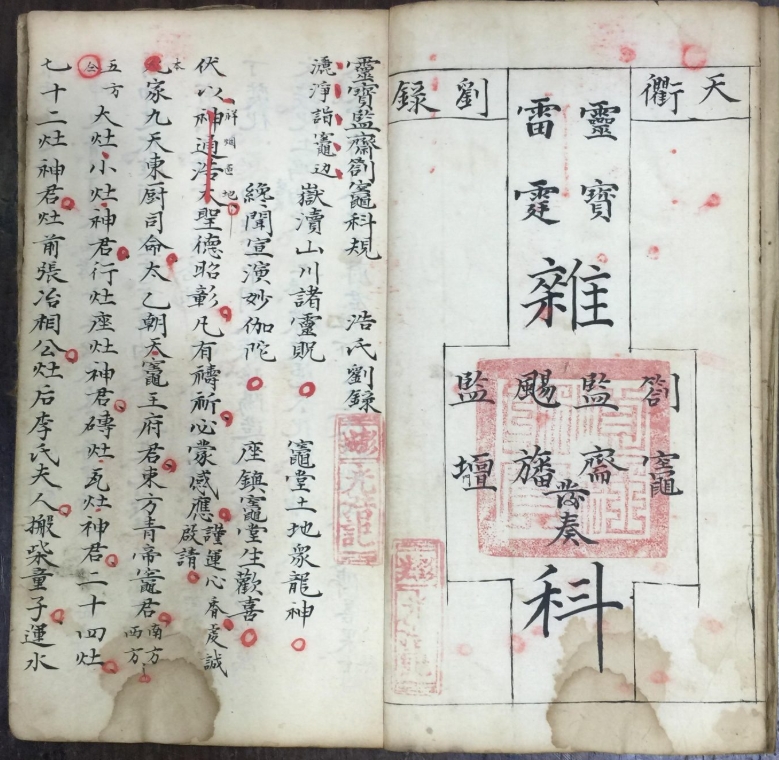 天衢
劄竈
靈寶
監齋
雜
發奏
科
雷霆
颺旛
劉錄
監壇
靈寶監齋劄竈科規 浩氏劉錄
漉淨詣竈边 嶽瀆山川諸靈貺 竈堂土地衆龍神
纔聞宣演妙伽陀 座鎮竈堂生歡喜
伏以神通浩大聖德昭彰凡有禱祈必蒙感應謹運心香虔誠啟請
祥烟匝地
本家九天東厨司命太乙朝天竈王府君東方青帝竈君南方西方
五方大灶小灶神君行灶座灶神君磚灶瓦灶神君二十四灶
七十二灶神君灶前張冶相公灶后李氏夫人搬柴童子運水